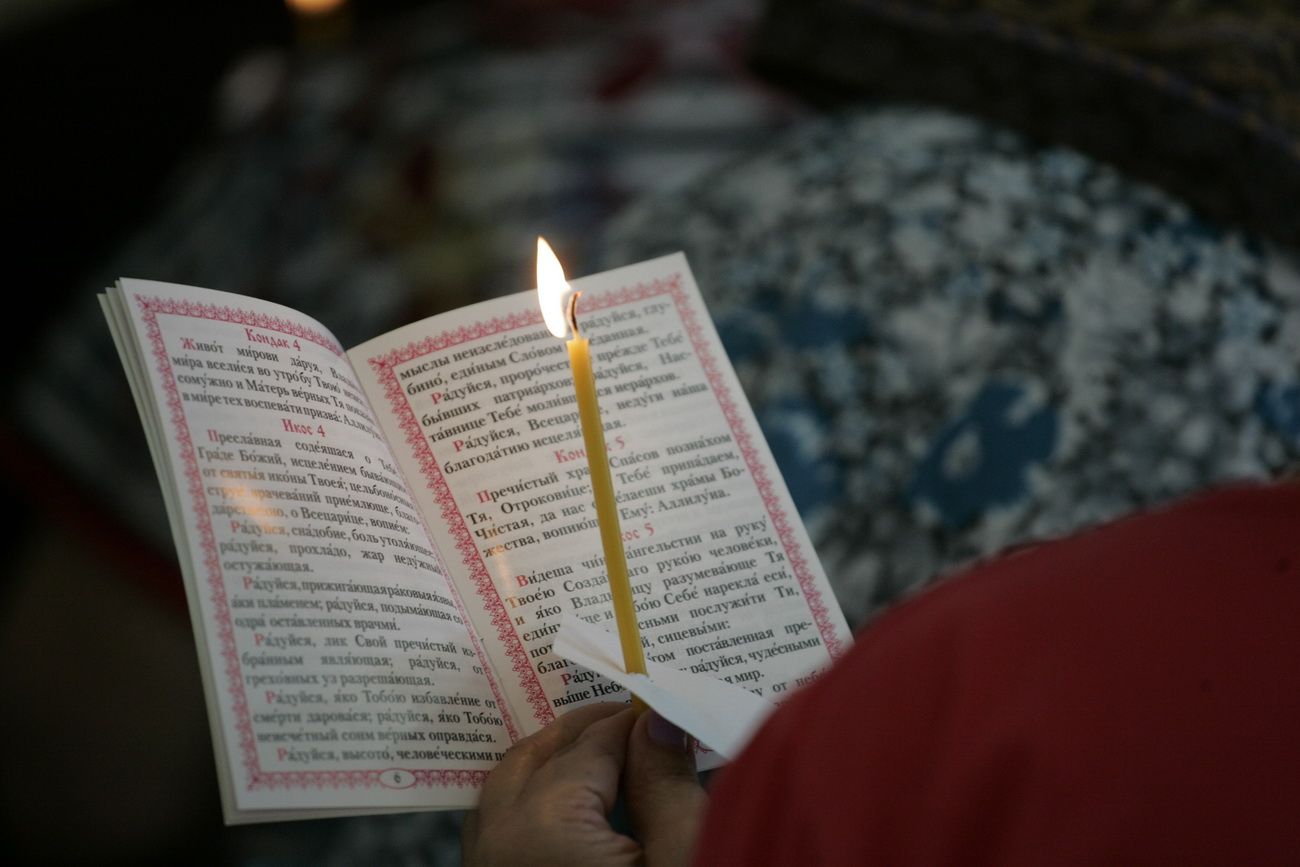 Кондак 4
Живо́т ми́рови да́руя, Влады
ми́ра всели́ся во утро́бу Твою́
сому́жно и Ма́терь ве́рных Тя
в ми́ре тех воспева́ти призва́: Аллилу́
Икос 4
Пресла́вная соде́яшася о Тебе́
Гра́де Бо́жий, исцеле́нием быва́ю
от святы́я ико́ны Твоея́; цельбоно́сн
струи́ врачева́ний прие́млюще, благо
да́рственно, о Всецари́це, вопие́м:
Ра́дуйся, сна́добие, боль утоля́ющее;
ра́дуйся, прохла́до, жар неду́жных
остужа́ющая.
Ра́дуйся, прижига́ющая ра́ковыя я́звы,
а́ки пла́менем; ра́дуйся, подыма́ющая со
одра́ оста́вленных врачми́.
Ра́дуйся, лик Свой пречи́стый из-
бра́нным явля́ющая; ра́дуйся, от
грехо́вных уз разреша́ющая.
Ра́дуйся, я́ко Тобо́ю избавле́ние от
сме́рти дарова́ся; ра́дуйся, я́ко Тобо́ю
неисче́тный сонм ве́рных оправда́ся.
Ра́дуйся, высото́, челове́ческими
6
мы́слы неизсле́дова ра́дуйся, глу-
бино́, еди́ным Сло́вом
Ра́дуйся, проро́чест пре́жде Тебе́
бы́вших патриа́рхов; ра́дуйся, Нас-
та́внице Тебе́ моли́вшихся иера́рхов.
Ра́дуйся, Всецари́це, неду́ги на́ша
благода́тию исцеля́ющая.
Кондак 5
Пречи́стый храм Спа́сов позна́хом
Тя, Отрокови́це; Тебе́ припа́даем,
Чи́стая, да нас соде́лаеши хра́мы Бо-
жества́, вопию́щ Ему́: Аллилу́иа.
Икос 5
Ви́деша чи́ни а́нгельстии на руку́
Твое́ю Созда́вшаго руко́ю челове́ки,
и я́ко Влады́цу разумева́юще Тя
еди́ну ще и Тобо́ю Себе́ нарекла́ еси́,
пот сньми послужи́ти Ти,
благ сицевы́ми:
Ра́ду гом поста́вленная пре-
вы́ше Неб ра́дуйся, чуде́сными
я мир.
от